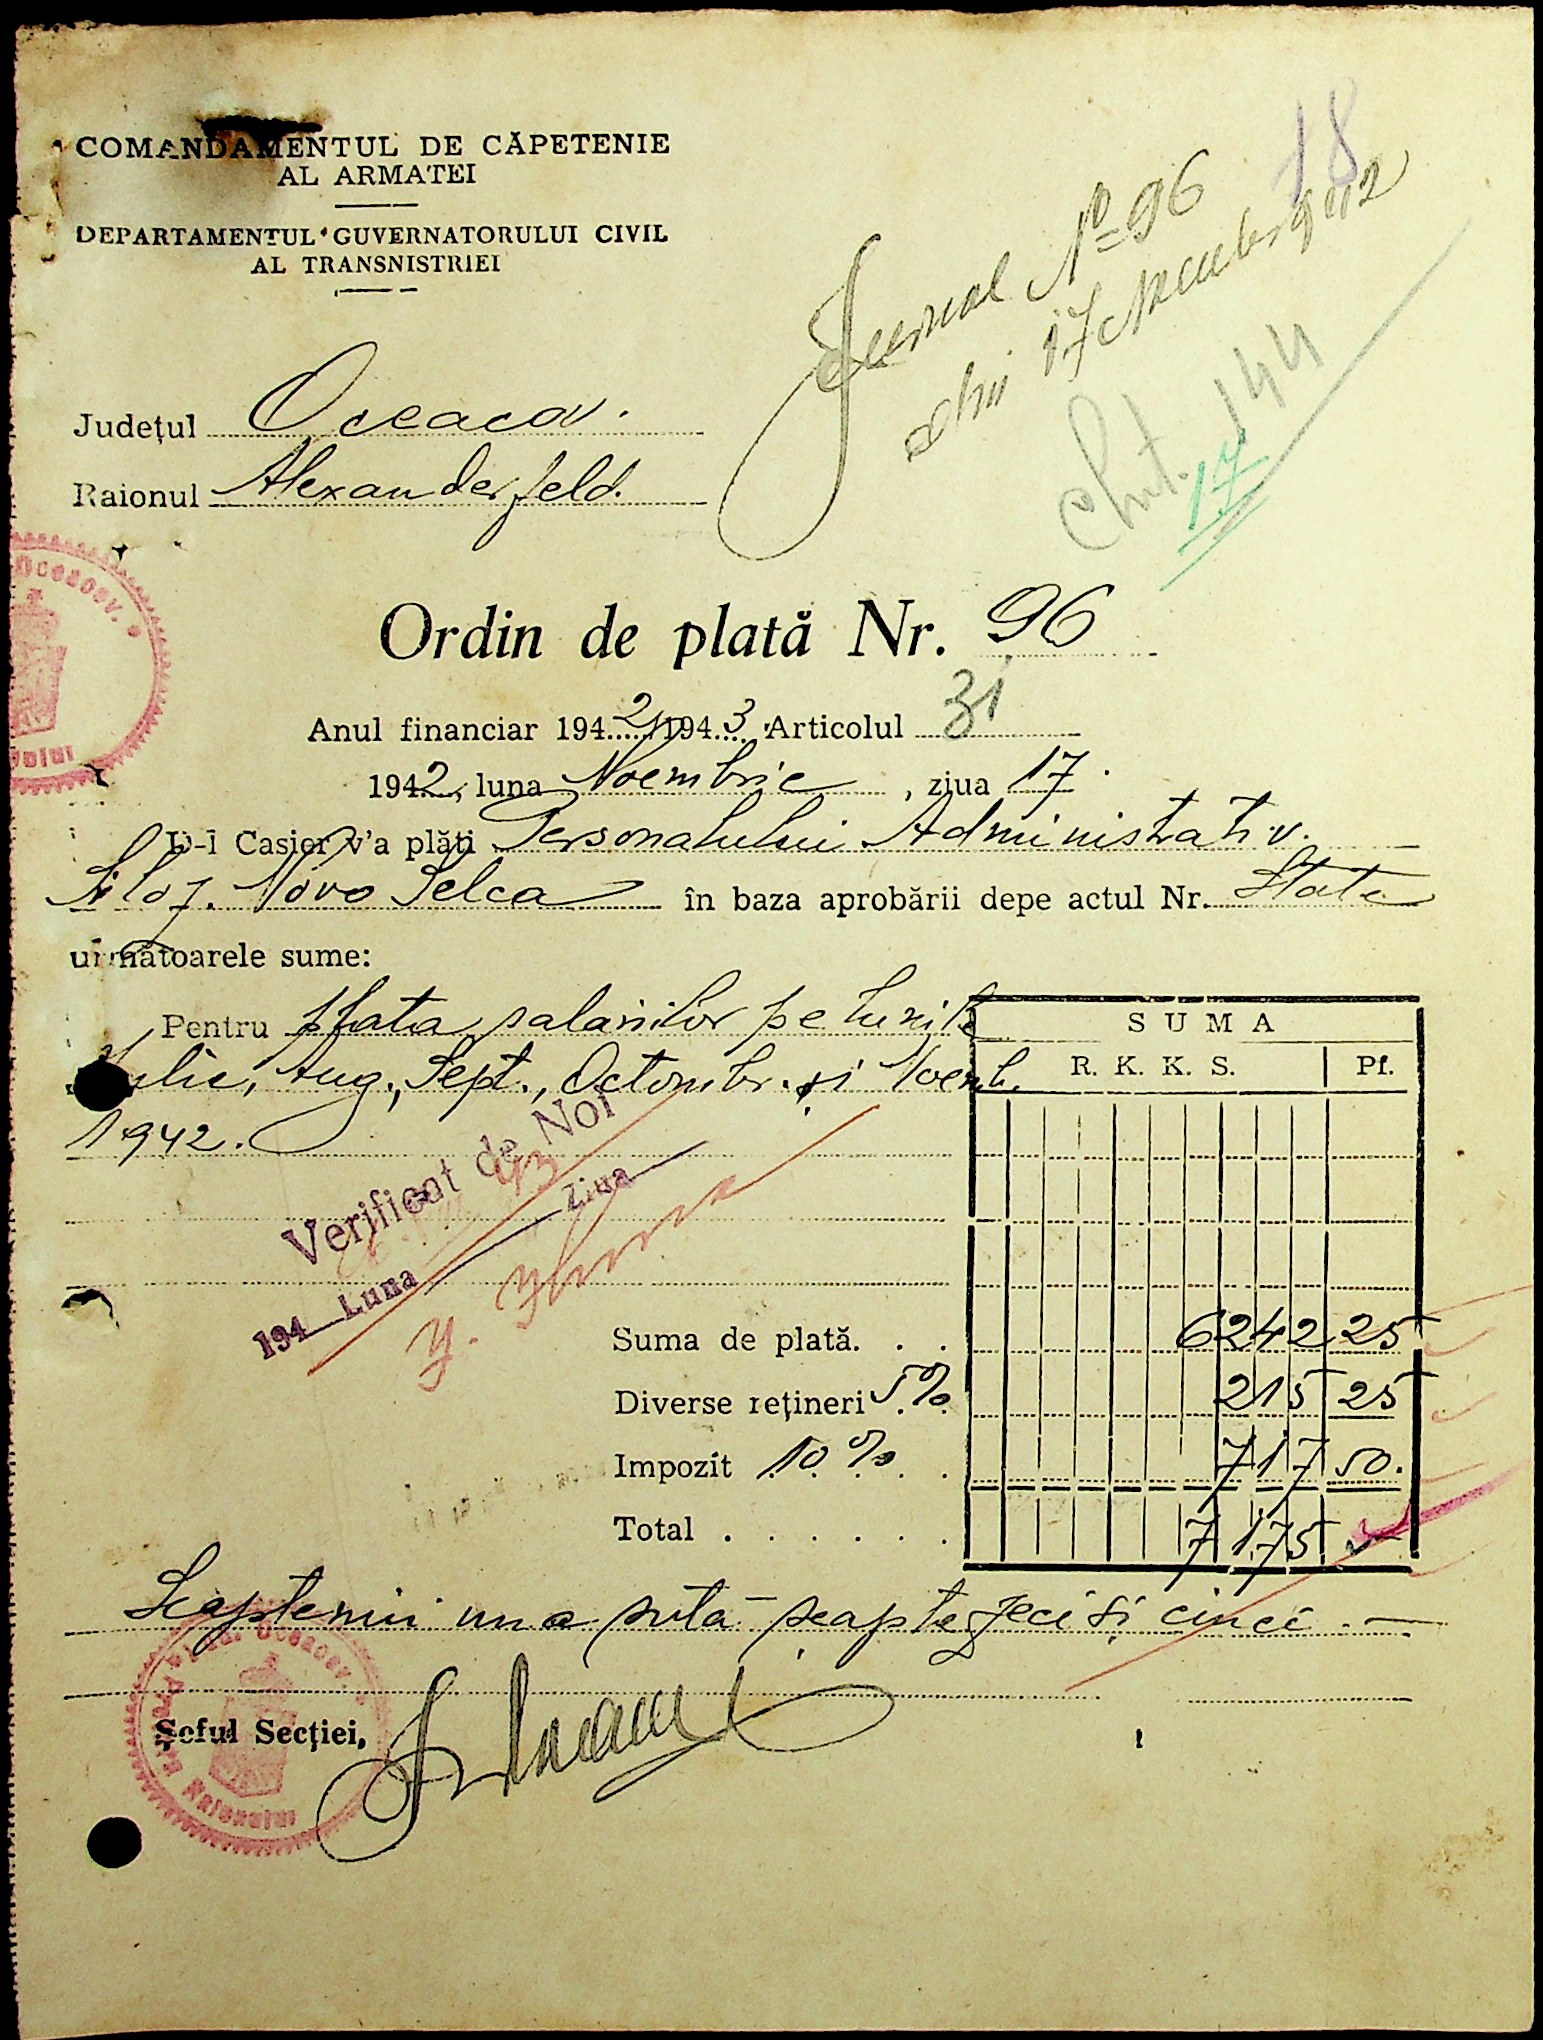 18
COMANDAMENTUL DE CĂPETENIE
AL ARMATEI
DEPARTAMENTUL GUVERNATORULUI CIVIL
AL TRANSNISTRIEI
Jurnal No 96
17 Noembr 942
Chit. 144
17
Județul Oceacov.
Raionul Alexanderfeld.
Ordin de plată Nr. 96
Anul financiar 1942/1943 Articolul 31
1942, luna Noembrie, ziua 17.
D-l Casier v'a plăti Personalului Administrativ.
Siloz. Novo Selca în baza aprobării depe actul Nr. State
următoarele sume:
Pentru plata salariilor pe lunile
Iulie, Aug., Sept., Octombr. și Noemb.
1942.
SUMA
R. K. K. S. Pf.
Verificat de Noi
194 Luna Ziua
Suma de plată. . . 6242 25
Diverse rețineri 5% 215 25
Impozit 10% . . 717 50.
Total . . . . . . 7175 —
Șaptemii una sută șaptezeci și cinci. —
Șeful Secției,